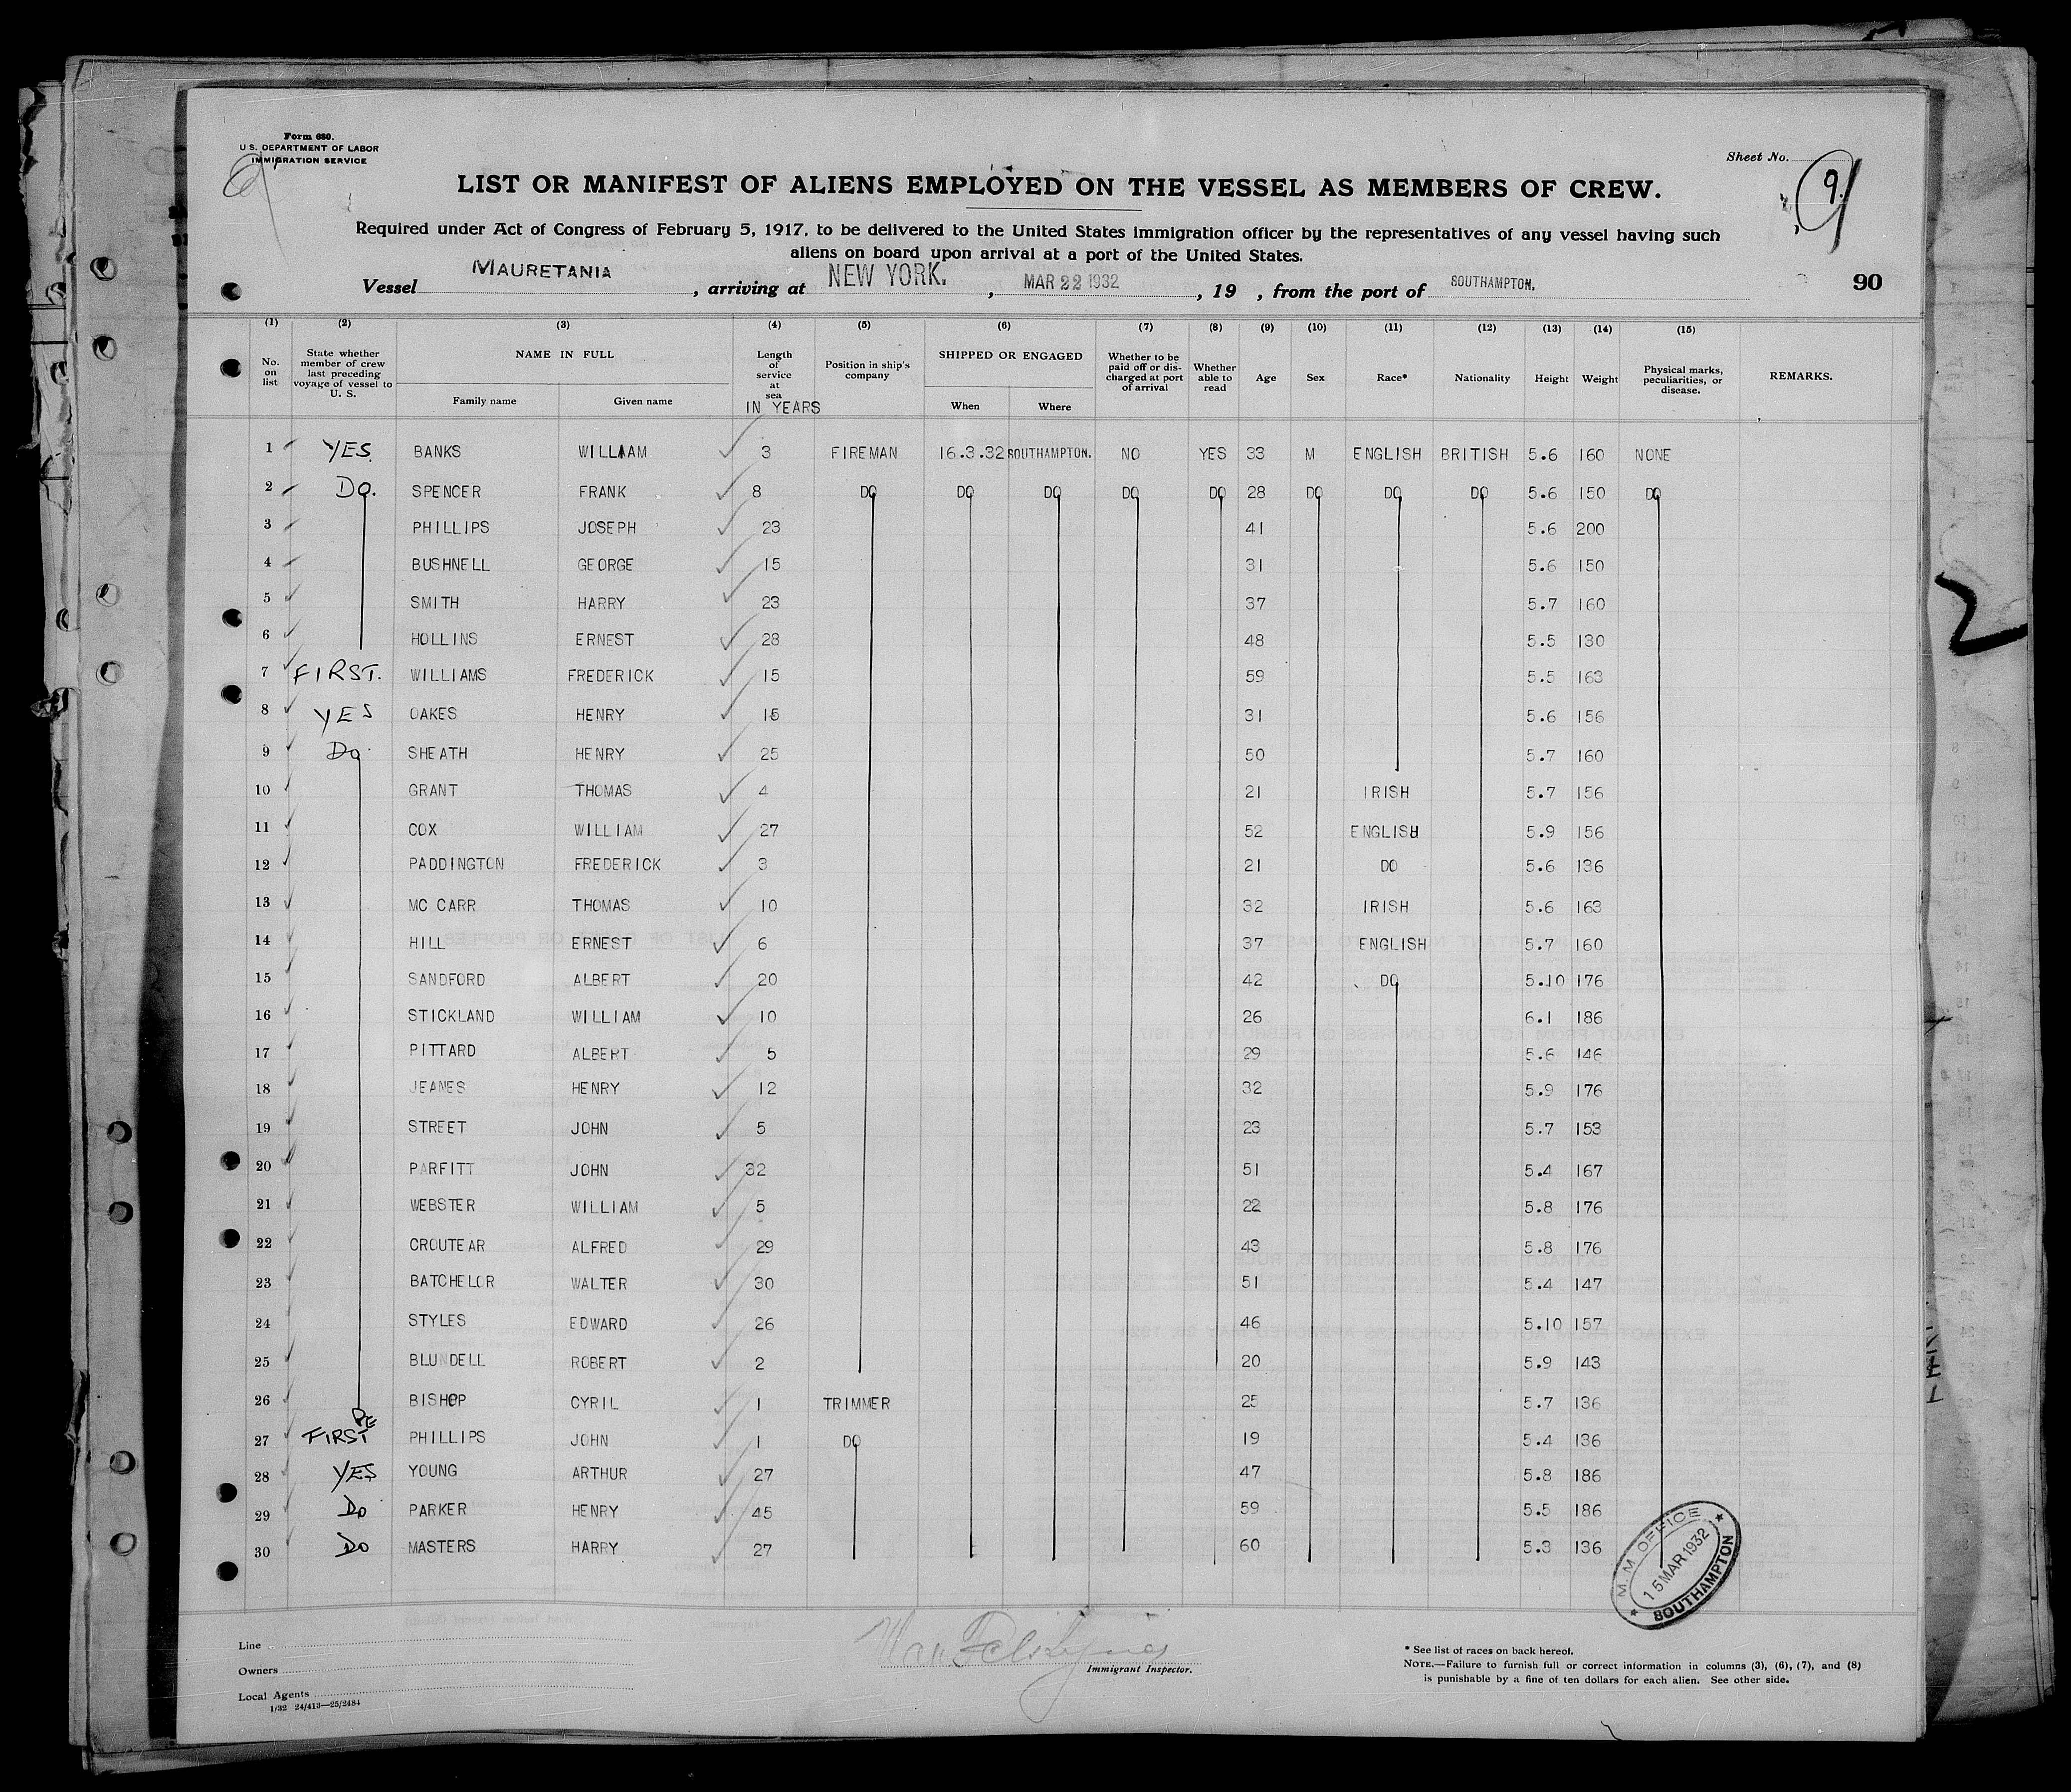 Form 680.
U. S. DEPARTMENT OF LABOR
IMMIGRATION SERVICE
Sheet No. 9
LIST OR MANIFEST OF ALIENS EMPLOYED ON THE VESSEL AS MEMBERS OF CREW.
Required under Act of Congress of February 5, 1917, to be delivered to the United States immigration officer by the representatives of any vessel having such
aliens on board upon arrival at a port of the United States.
Vessel MAURETANIA, arriving at NEW YORK., MAR 22 1932, 19 , from the port of SOUTHAMPTON. 90
(1) (2) (3) (4) (5) (6) (7) (8) (9) (10) (11) (12) (13) (14) (15)
No. on list State whether member of crew last preceding voyage of vessel to U. S. NAME IN FULL Family name Given name Length of service at sea IN YEARS Position in ship's company SHIPPED OR ENGAGED When Where Whether to be paid off or discharged at port of arrival Whether able to read Age Sex Race* Nationality Height Weight Physical marks, peculiarities, or disease. REMARKS.
1 YES. BANKS WILLIAM 3 FIREMAN 16.3.32 SOUTHAMPTON. NO YES 33 M ENGLISH BRITISH 5.6 160 NONE
2 Do. SPENCER FRANK 8 DO DO DO DO DO 28 DO DO DO 5.6 150 DO
3 PHILLIPS JOSEPH 23 41 5.6 200
4 BUSHNELL GEORGE 15 31 5.6 150
5 SMITH HARRY 23 37 5.7 160
6 HOLLINS ERNEST 28 48 5.5 130
7 FIRST. WILLIAMS FREDERICK 15 59 5.5 163
8 YES OAKES HENRY 15 31 5.6 156
9 Do SHEATH HENRY 25 50 5.7 160
10 GRANT THOMAS 4 21 IRISH 5.7 156
11 COX WILLIAM 27 52 ENGLISH 5.9 156
12 PADDINGTON FREDERICK 3 21 DO 5.6 136
13 MC CARR THOMAS 10 32 IRISH 5.6 163
14 HILL ERNEST 6 37 ENGLISH 5.7 160
15 SANDFORD ALBERT 20 42 DO 5.10 176
16 STICKLAND WILLIAM 10 26 6.1 186
17 PITTARD ALBERT 5 29 5.6 146
18 JEANES HENRY 12 32 5.9 176
19 STREET JOHN 5 23 5.7 153
20 PARFITT JOHN 32 51 5.4 167
21 WEBSTER WILLIAM 5 22 5.8 176
22 CROUTEAR ALFRED 29 43 5.8 176
23 BATCHELOR WALTER 30 51 5.4 147
24 STYLES EDWARD 26 46 5.10 157
25 BLUNDELL ROBERT 2 20 5.9 143
26 BISHOP CYRIL 1 TRIMMER 25 5.7 136
27 FIRST PHILLIPS JOHN 1 DO 19 5.4 136
28 YES YOUNG ARTHUR 27 47 5.8 186
29 Do PARKER HENRY 45 59 5.5 186
30 Do MASTERS HARRY 27 60 5.3 136
M. M. OFFICE
15 MAR 1932
SOUTHAMPTON
Line
Owners
Local Agents
1/32 24/413—25/2484
Immigrant Inspector.
* See list of races on back hereof.
NOTE.—Failure to furnish full or correct information in columns (3), (6), (7), and (8)
is punishable by a fine of ten dollars for each alien. See other side.